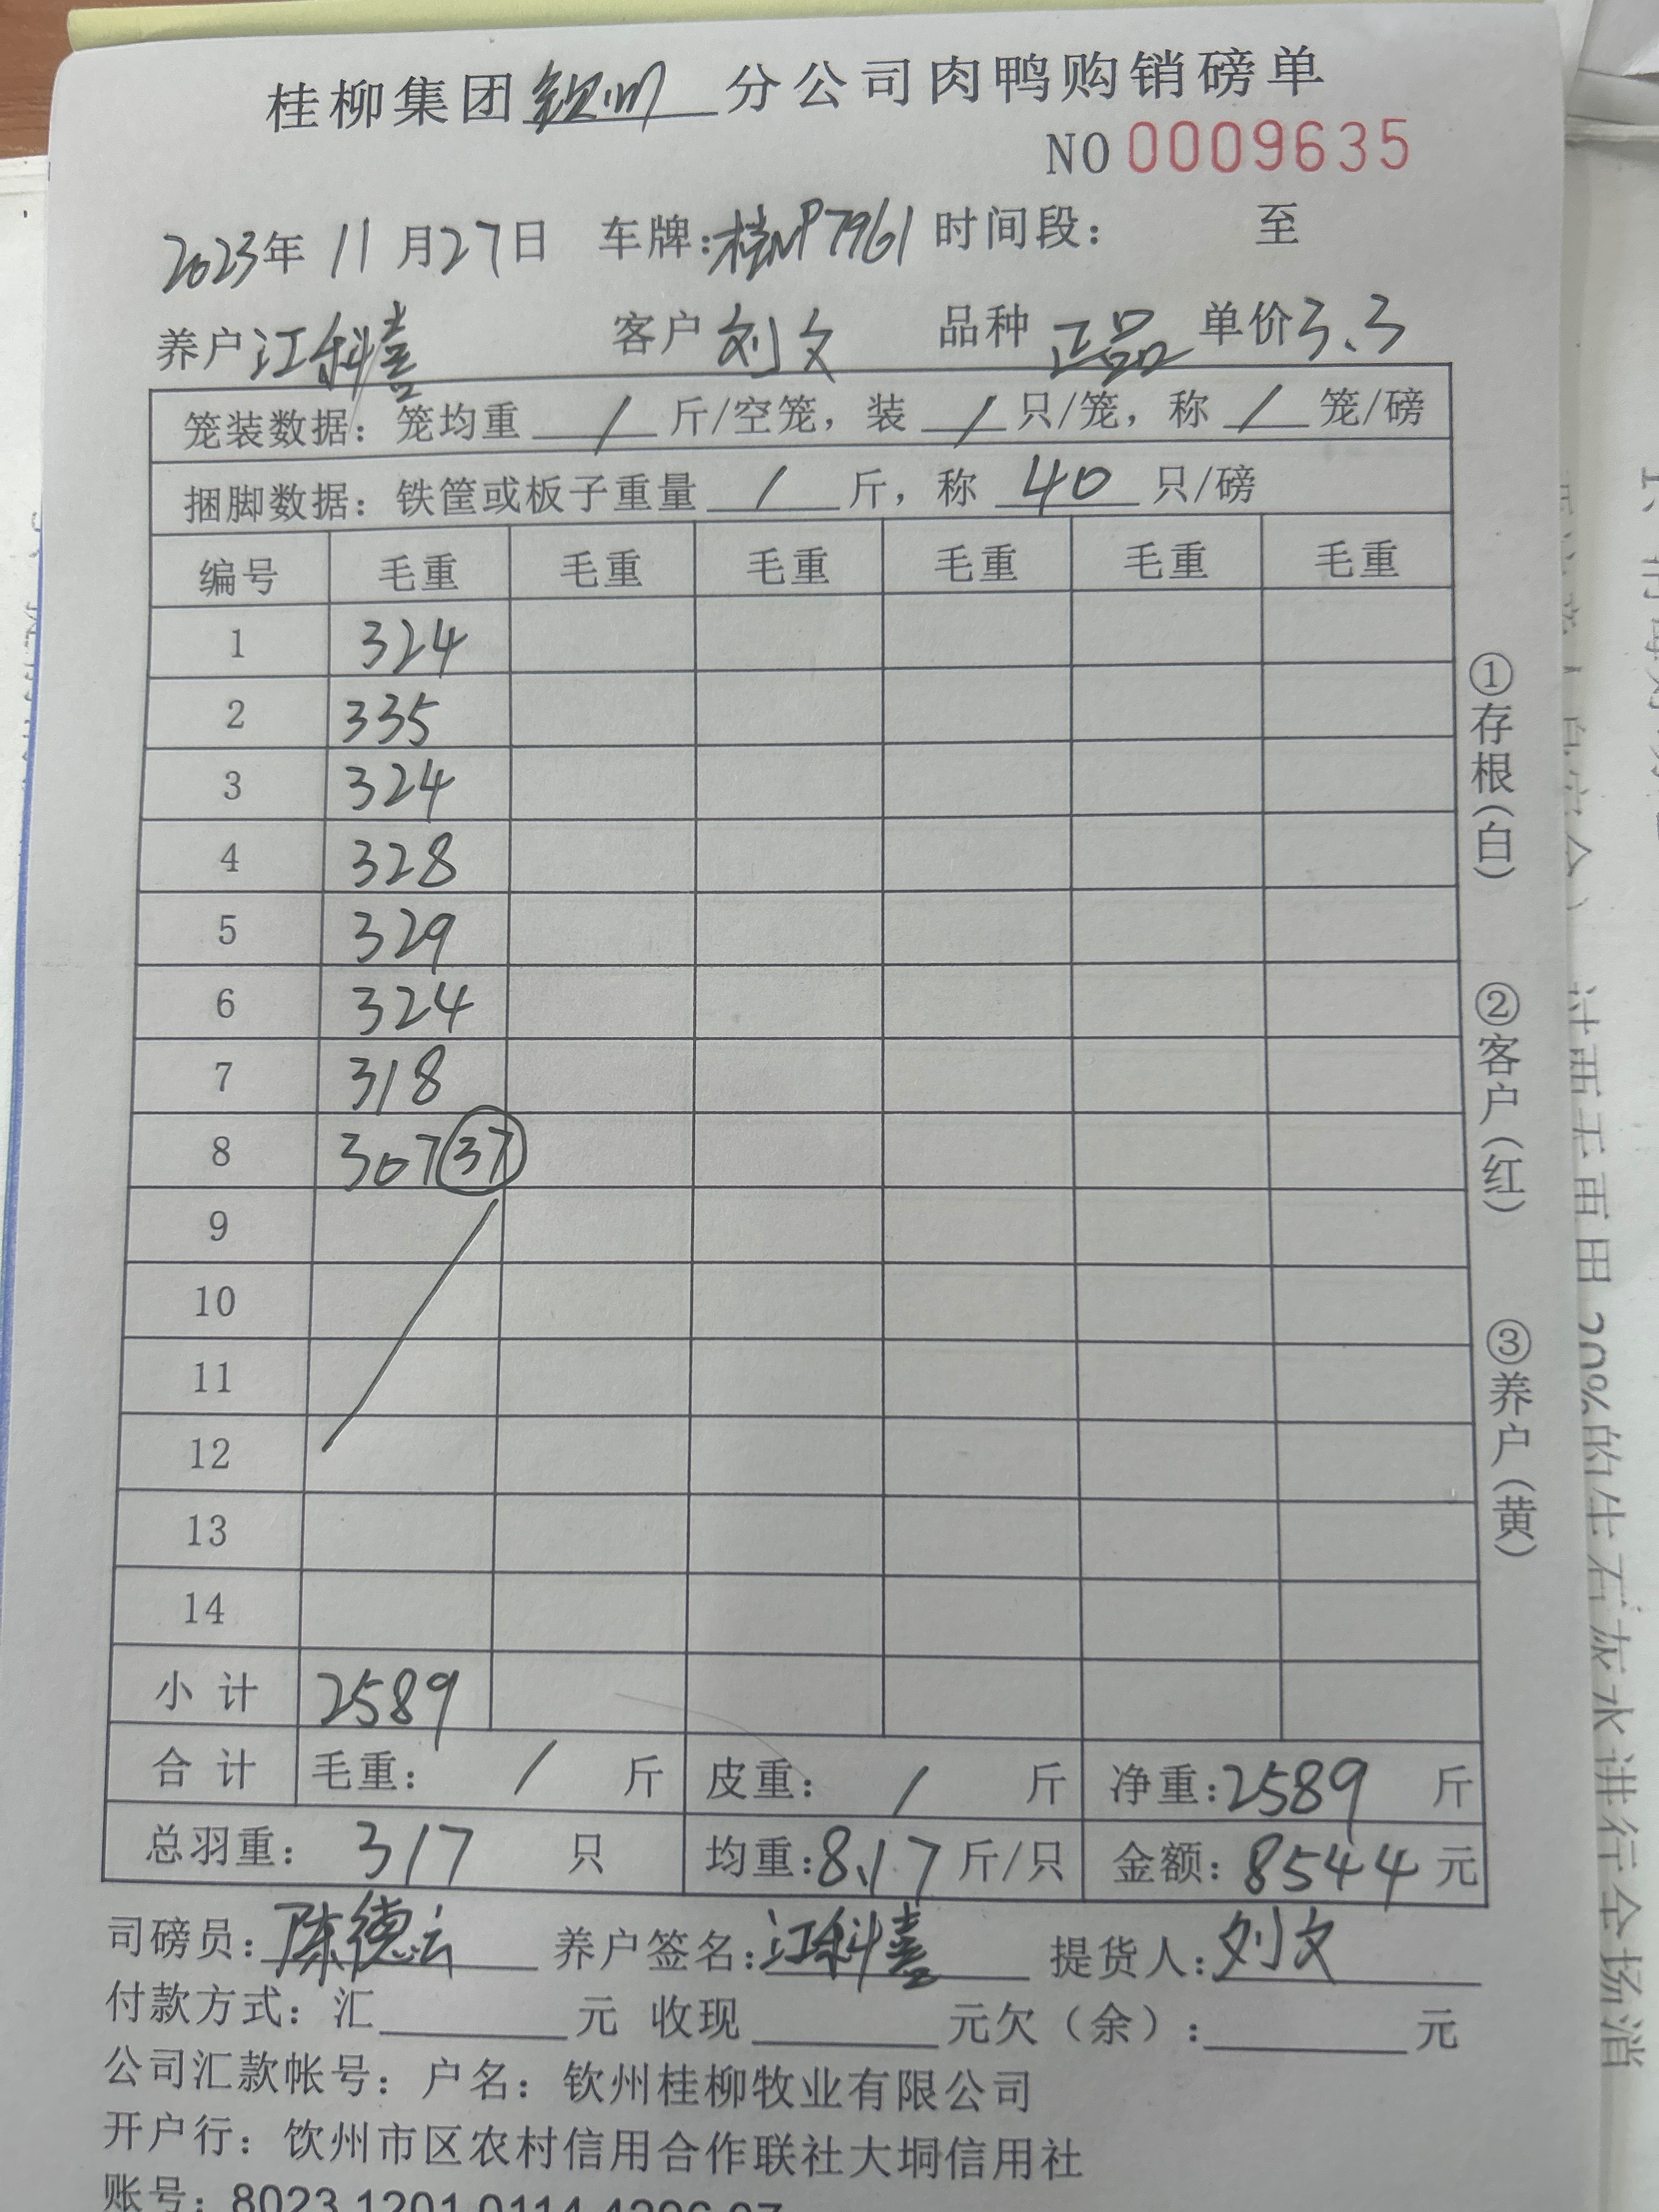 桂柳集团钦州分公司肉鸭购销磅单
NO 0009635
2023年 11 月27日 车牌:桂NP7961 时间段: 至
养户 江科喜 客户 刘文 品种 正品 单价3.3
笼装数据: 笼均重 / 斤/空笼, 装 / 只/笼, 称 / 笼/磅
捆脚数据: 铁筐或板子重量 / 斤, 称 40 只/磅
编号 毛重 毛重 毛重 毛重 毛重 毛重
1 324
2 335
3 324
4 328
5 329
6 324
7 318
8 307 37
9
10
11
12
13
14
小 计 2589
合 计 毛重: / 斤 皮重: / 斤 净重:2589 斤
总羽重: 317 只 均重:8.17 斤/只 金额: 8544 元
司磅员: 陈德云 养户签名: 江科喜 提货人: 刘文
付款方式: 汇 元 收现 元欠(余): 元
公司汇款帐号: 户名: 钦州桂柳牧业有限公司
开户行: 钦州市区农村信用合作联社大垌信用社
账号: 8023 1201 0114 4296 97
①存根(白)
②客户(红)
③养户(黄)
20%的生石灰水进行全场消